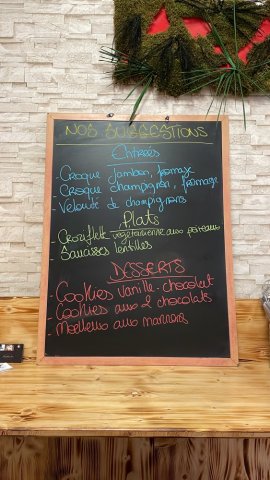 NOS SUGGESTIONS
Entrées
- Croque jambon, fromage
- Croque champignon, fromage
- Velouté de champignons
Plats
- Croziflette végétarienne aux poireaux
- Saucisses lentilles
DESSERTS
- Cookies vanille-chocolat
- Cookies aux 2 chocolats
- Moelleux aux marrons